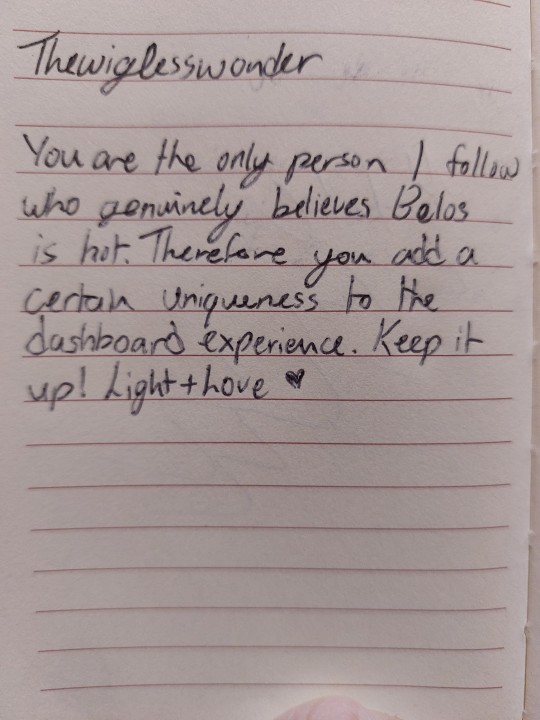 Thewiglesswonder
You are the only person I follow
who genuinely believes Belos
is hot. Therefore you add a
certain uniqueness to the
dashboard experience. Keep it
up! Light + Love ♥